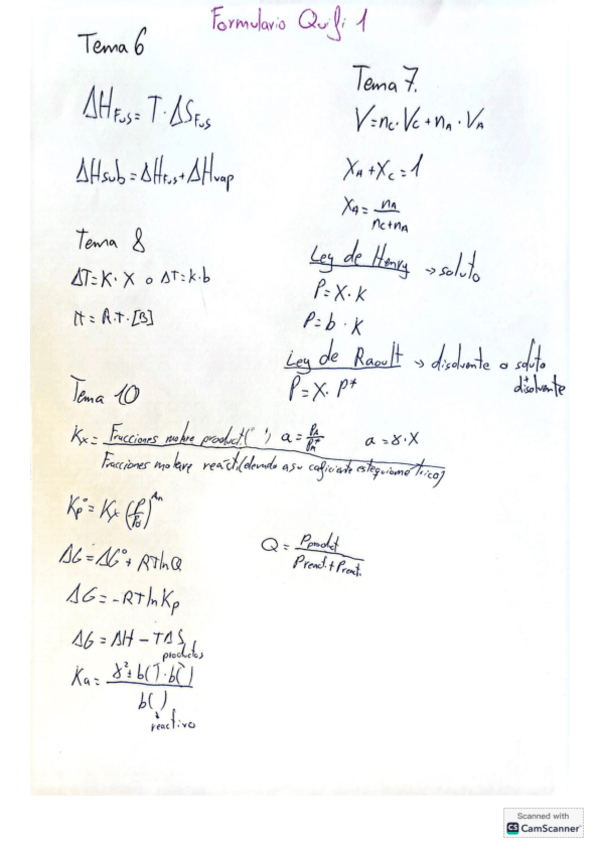 Formulario Qufi 1
Tema 6
ΔH_Fus = T · ΔS_Fus
ΔHsub = ΔH_Fus + ΔH_vap
Tema 7.
V = n_C · V_C + n_A · V_A
X_A + X_C = 1
X_A = n_A / n_C + n_A
Ley de Henry → soluto
P = X · K
P = b · K
Ley de Raoult → disolvente o soluto + disolvente
P = X · P*
Tema 8
ΔT = K · X o ΔT = k · b
π = R.T. [B]
Tema 10
K_x = Fracciones molare product( ) / Fracciones molare react (elevado a su coficiente estequiometrico)
a = P_A / P_A*
a = γ · X
K_p° = K_x (P/P_0)^Δn
ΔG = ΔG° + RTlnQ
Q = P product / P react. + P react.
ΔG = -RTlnK_p
ΔG = ΔH - TΔS
productos
K_a = γ²± b( ) · b( ) / b( )
reactivo
Scanned with
CS CamScanner